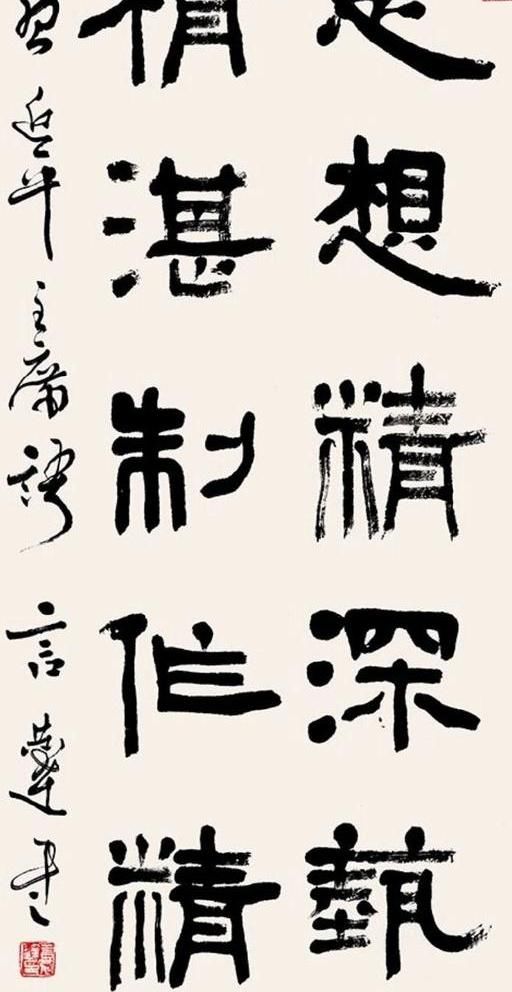 思想精深藝
精湛制作精
習近平主席語言恭達書